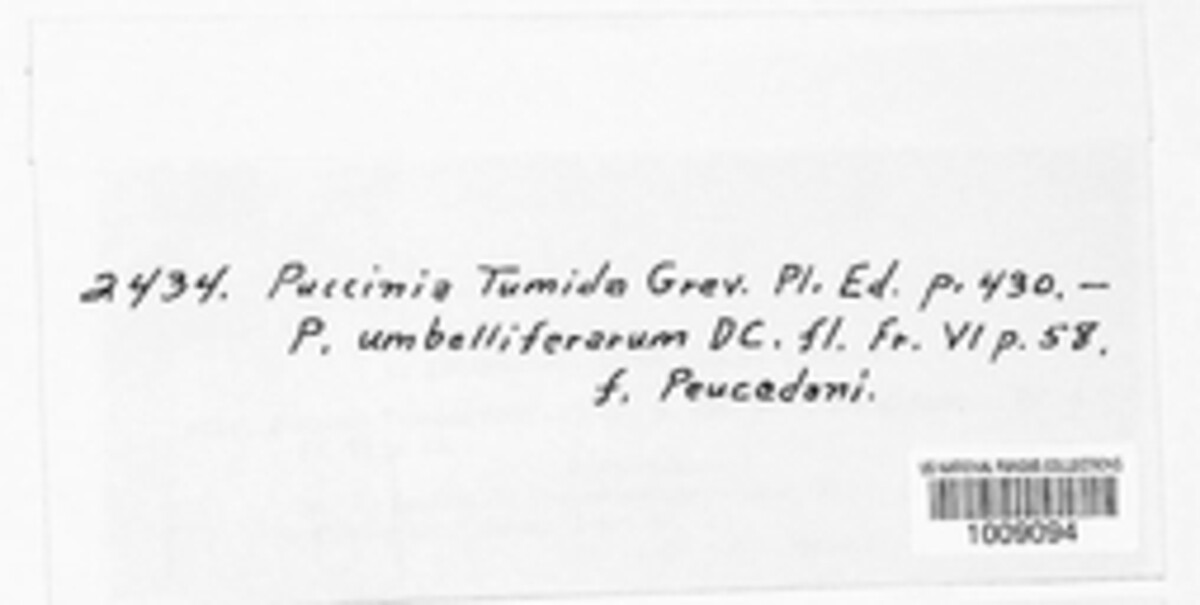 2434. Puccinia Tumida Grev. Pl. Ed. p. 430. —
P. umbelliferarum DC. fl. Fr. VI p. 58.
f. Peucedani.
US NATIONAL FUNGUS COLLECTIONS
1009094